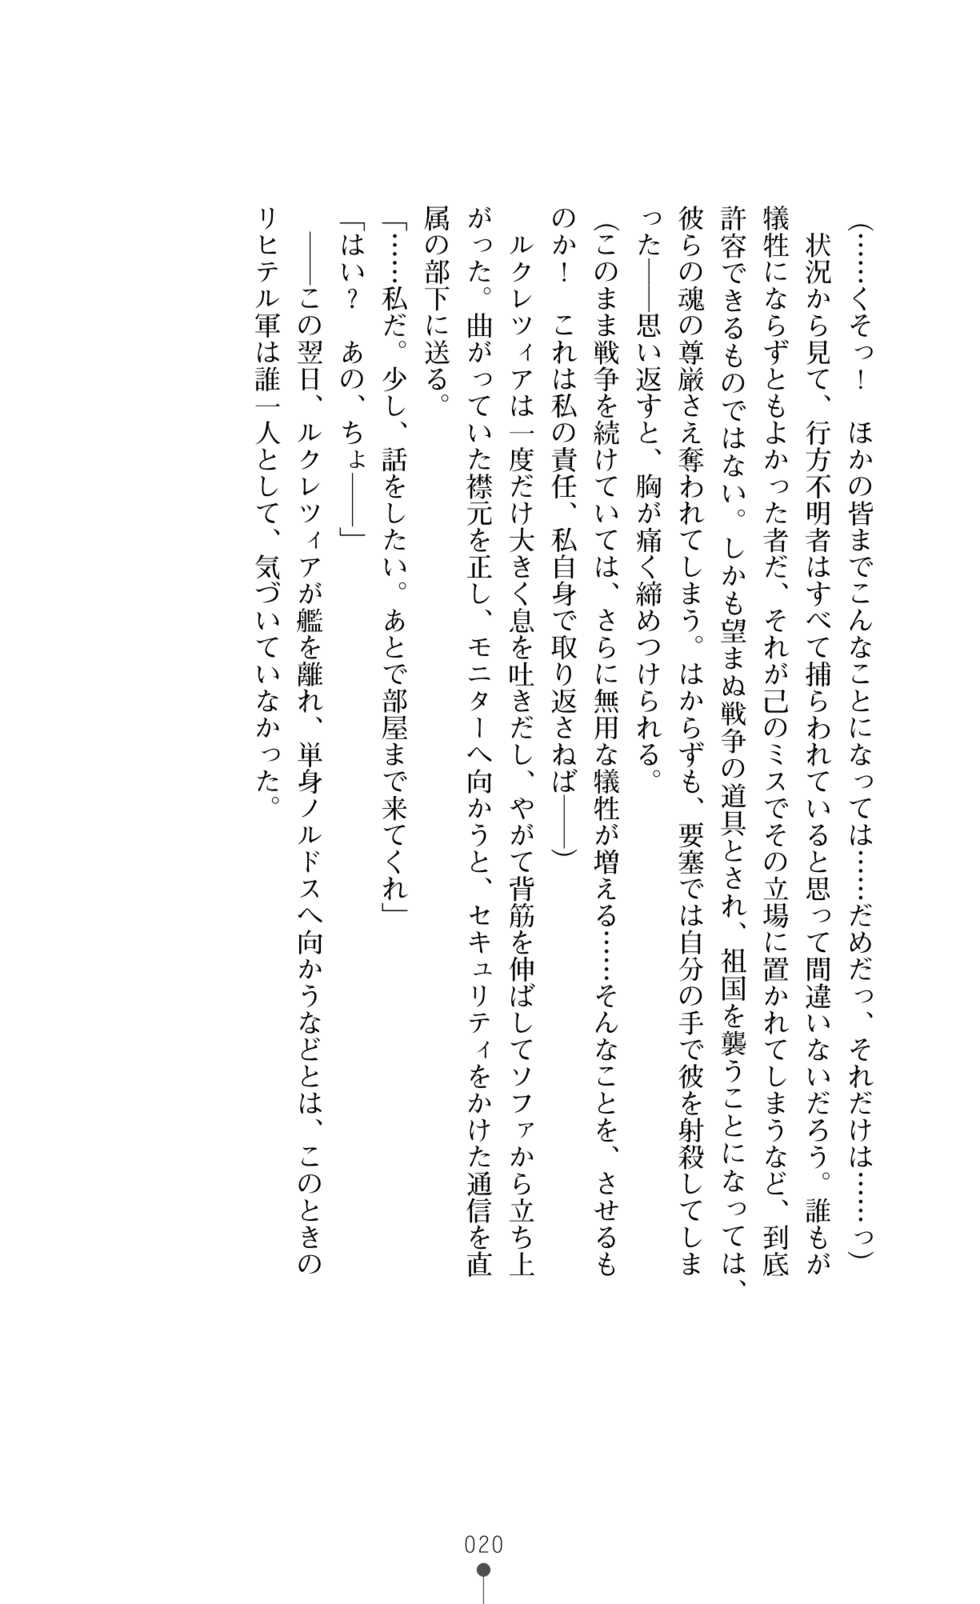 (……くそっ！　ほかの皆までこんなことになっては……だめだっ、それだけは……っ)
　状況から見て、行方不明者はすべて捕らわれていると思って間違いないだろう。誰もが
犠牲にならずともよかった者だ、それが己のミスでその立場に置かれてしまうなど、到底
許容できるものではない。しかも望まぬ戦争の道具とされ、祖国を襲うことになっては、
彼らの魂の尊厳さえ奪われてしまう。はからずも、要塞では自分の手で彼を射殺してしま
った――思い返すと、胸が痛く締めつけられる。
(このまま戦争を続けていては、さらに無用な犠牲が増える……そんなことを、させるも
のか！　これは私の責任、私自身で取り返さねば――)
　ルクレツィアは一度だけ大きく息を吐きだし、やがて背筋を伸ばしてソファから立ち上
がった。曲がっていた襟元を正し、モニターへ向かうと、セキュリティをかけた通信を直
属の部下に送る。
「……私だ。少し、話をしたい。あとで部屋まで来てくれ」
「はい？　あの、ちょ――」
　――この翌日、ルクレツィアが艦を離れ、単身ノルドスへ向かうなどとは、このときの
リヒテル軍は誰一人として、気づいていなかった。
020